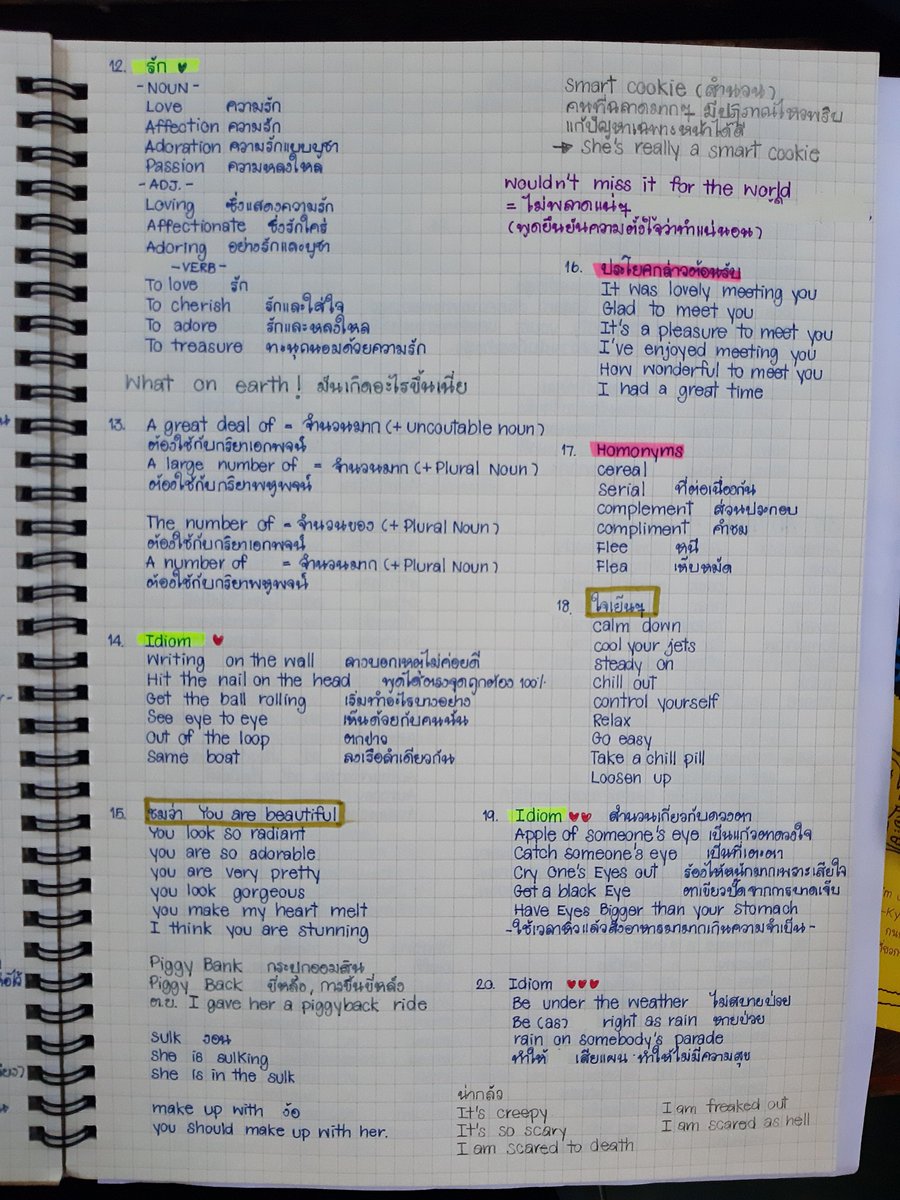 12. รัก
-NOUN-
Love ความรัก
Affection ความรัก
Adoration ความรักแบบบูชา
Passion ความหลงใหล
-ADJ.-
Loving ซึ่งแสดงความรัก
Affectionate ซึ่งรักใคร่
Adoring อย่างรักและบูชา
-VERB-
To love รัก
To cherish รักและใส่ใจ
To adore รักและหลงใหล
To treasure ทะนุถนอมด้วยความรัก
What on earth! มันเกิดอะไรขึ้นเนี่ย
13. A great deal of = จำนวนมาก (+ uncoutable noun)
ต้องใช้กับกริยาเอกพจน์
A large number of = จำนวนมาก (+ Plural Noun)
ต้องใช้กับกริยาพหูพจน์
The number of = จำนวนของ (+ Plural Noun)
ต้องใช้กับกริยาเอกพจน์
A number of = จำนวนมาก (+ Plural Noun)
ต้องใช้กับกริยาพหูพจน์
14. Idiom
Writing on the wall ลางบอกเหตุไม่ค่อยดี
Hit the nail on the head พูดได้ตรงจุดถูกต้อง 100%
Get the ball rolling เริ่มทำอะไรบางอย่าง
See eye to eye เห็นด้วยกับคนนั้น
Out of the loop ตกข่าว
Same boat ลงเรือลำเดียวกัน
15. ชมว่า You are beautiful
You look so radiant
you are so adorable
you are very pretty
you look gorgeous
you make my heart melt
I think you are stunning
Piggy Bank กระปุกออมสิน
Piggy Back ขี่หลัง, การขึ้นขี่หลัง
ต.ย. I gave her a piggyback ride
sulk งอน
she is sulking
she is in the sulk
make up with ง้อ
you should make up with her.
smart cookie (สำนวน)
คนที่ฉลาดมากๆ มีปฏิภาณไหวพริบ
แก้ปัญหาเฉพาะหน้าได้ดี
→ She's really a smart cookie
wouldn't miss it for the world
= ไม่พลาดแน่ๆ
(พูดยืนยันความตั้งใจว่าทำแน่นอน)
16. ประโยคกล่าวต้อนรับ
It was lovely meeting you
Glad to meet you
It's a pleasure to meet you
I've enjoyed meeting you
How wonderful to meet you
I had a great time
17. Homonyms
cereal
serial ที่ต่อเนื่องกัน
complement ส่วนประกอบ
compliment คำชม
Flee หนี
Flea เห็บหมัด
18. ใจเย็นๆ
calm down
cool your jets
steady on
chill out
control yourself
Relax
Go easy
Take a chill pill
Loosen up
19. Idiom สำนวนเกี่ยวกับดวงตา
Apple of someone's eye เป็นแก้วตาดวงใจ
Catch someone's eye เป็นที่เตะตา
Cry One's Eyes out ร้องไห้หนักมากเพราะเสียใจ
Get a black Eye ตาเขียวปั๊ดจากการบาดเจ็บ
Have Eyes Bigger than your stomach
-ใช้เวลาหิวแล้วสั่งอาหารมามากเกินความจำเป็น-
20. Idiom
Be under the weather ไม่สบายป่วย
Be (as) right as rain หายป่วย
rain on somebody's parade
ทำให้ เสียแผน ทำให้ไม่มีความสุข
น่ากลัว
It's creepy
It's so scary
I am scared to death
I am freaked out
I am scared as hell